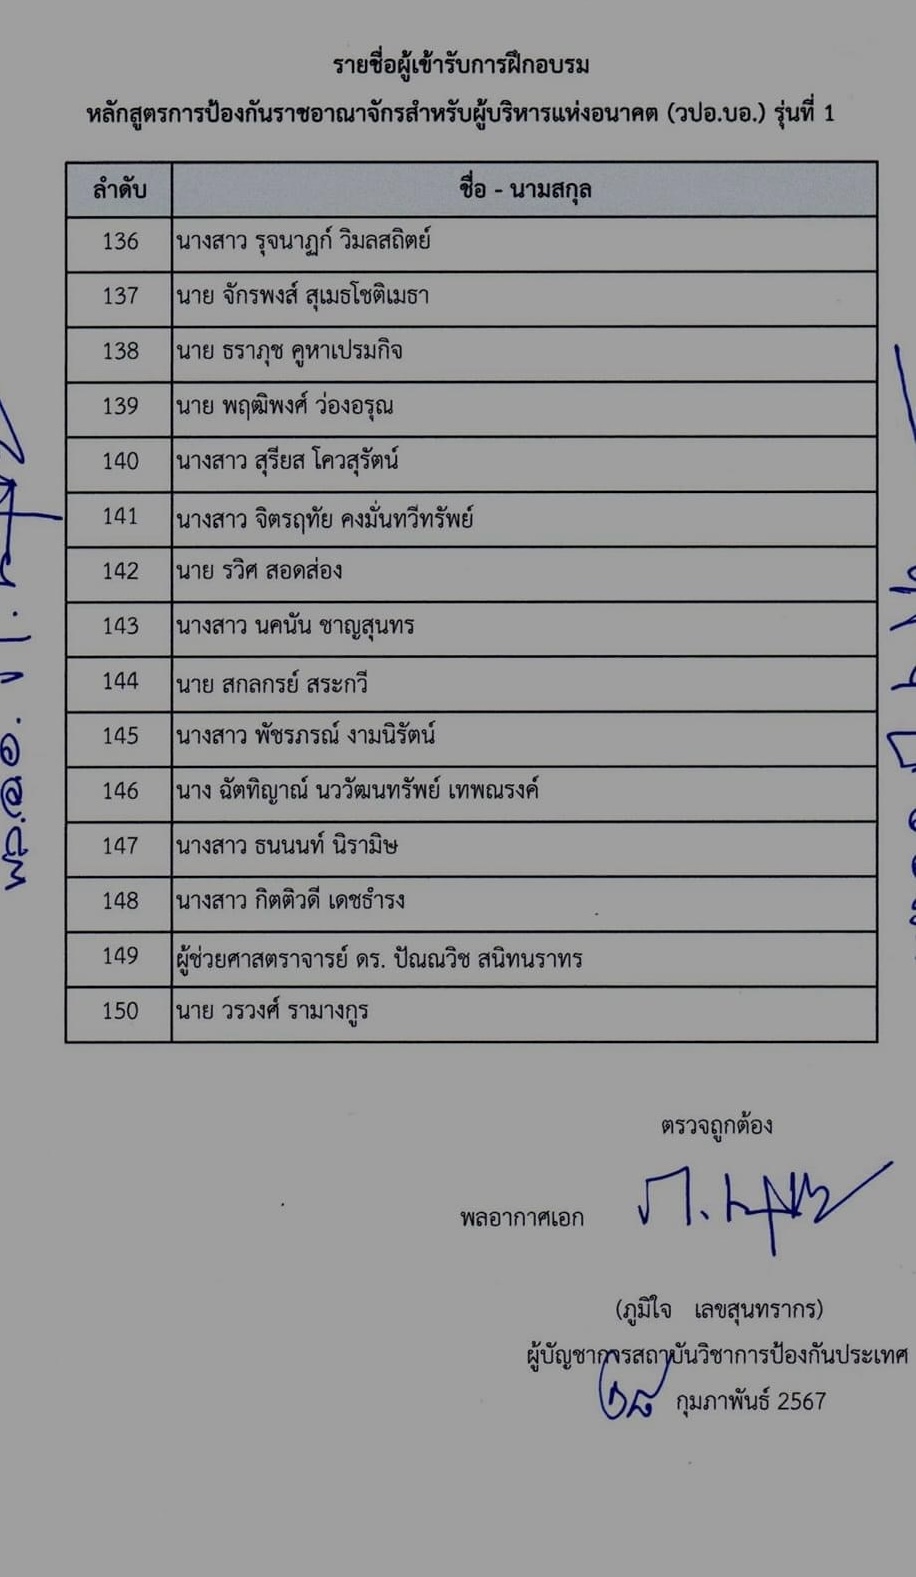 รายชื่อผู้เข้ารับการฝึกอบรม
หลักสูตรการป้องกันราชอาณาจักรสำหรับผู้บริหารแห่งอนาคต (วปอ.บอ.) รุ่นที่ 1
ลำดับ ชื่อ - นามสกุล
136 นางสาว รุจนาฏก์ วิมลสถิตย์
137 นาย จักรพงส์ สุเมธโชติเมธา
138 นาย ธราภุช คูหาเปรมกิจ
139 นาย พฤฒิพงศ์ ว่องอรุณ
140 นางสาว สุรียส โควสุรัตน์
141 นางสาว จิตรฤทัย คงมั่นทวีทรัพย์
142 นาย รวิศ สอดส่อง
143 นางสาว นคนัน ชาญสุนทร
144 นาย สกลกรย์ สระกวี
145 นางสาว พัชรภรณ์ งามนิรัตน์
146 นาง ฉัตทิญาณ์ นววัฒนทรัพย์ เทพณรงค์
147 นางสาว ธนนนท์ นิรามิษ
148 นางสาว กิตติวดี เดชธำรง
149 ผู้ช่วยศาสตราจารย์ ดร. ปัณณวิช สนิทนราทร
150 นาย วรวงศ์ รามางกูร
ตรวจถูกต้อง
พลอากาศเอก
(ภูมิใจ เลขสุนทรากร)
ผู้บัญชาการสถาบันวิชาการป้องกันประเทศ
กุมภาพันธ์ 2567